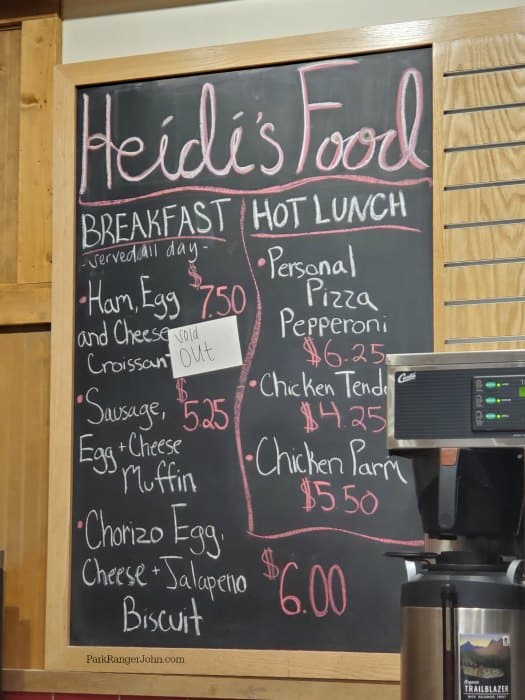 Heidi's Food
BREAKFAST
- served all day -
• Ham, Egg $7.50
and Cheese
Croissan
Sold
OUT
• Sausage, $5.25
Egg + Cheese
Muffin
• Chorizo Egg,
Cheese + Jalapeno
Biscuit
$6.00
HOT LUNCH
• Personal
Pizza
Pepperoni
$6.25
• Chicken Tend
$4.25
• Chicken Parm
$5.50
Curtis
TRAILBLAZER
ParkRangerJohn.com